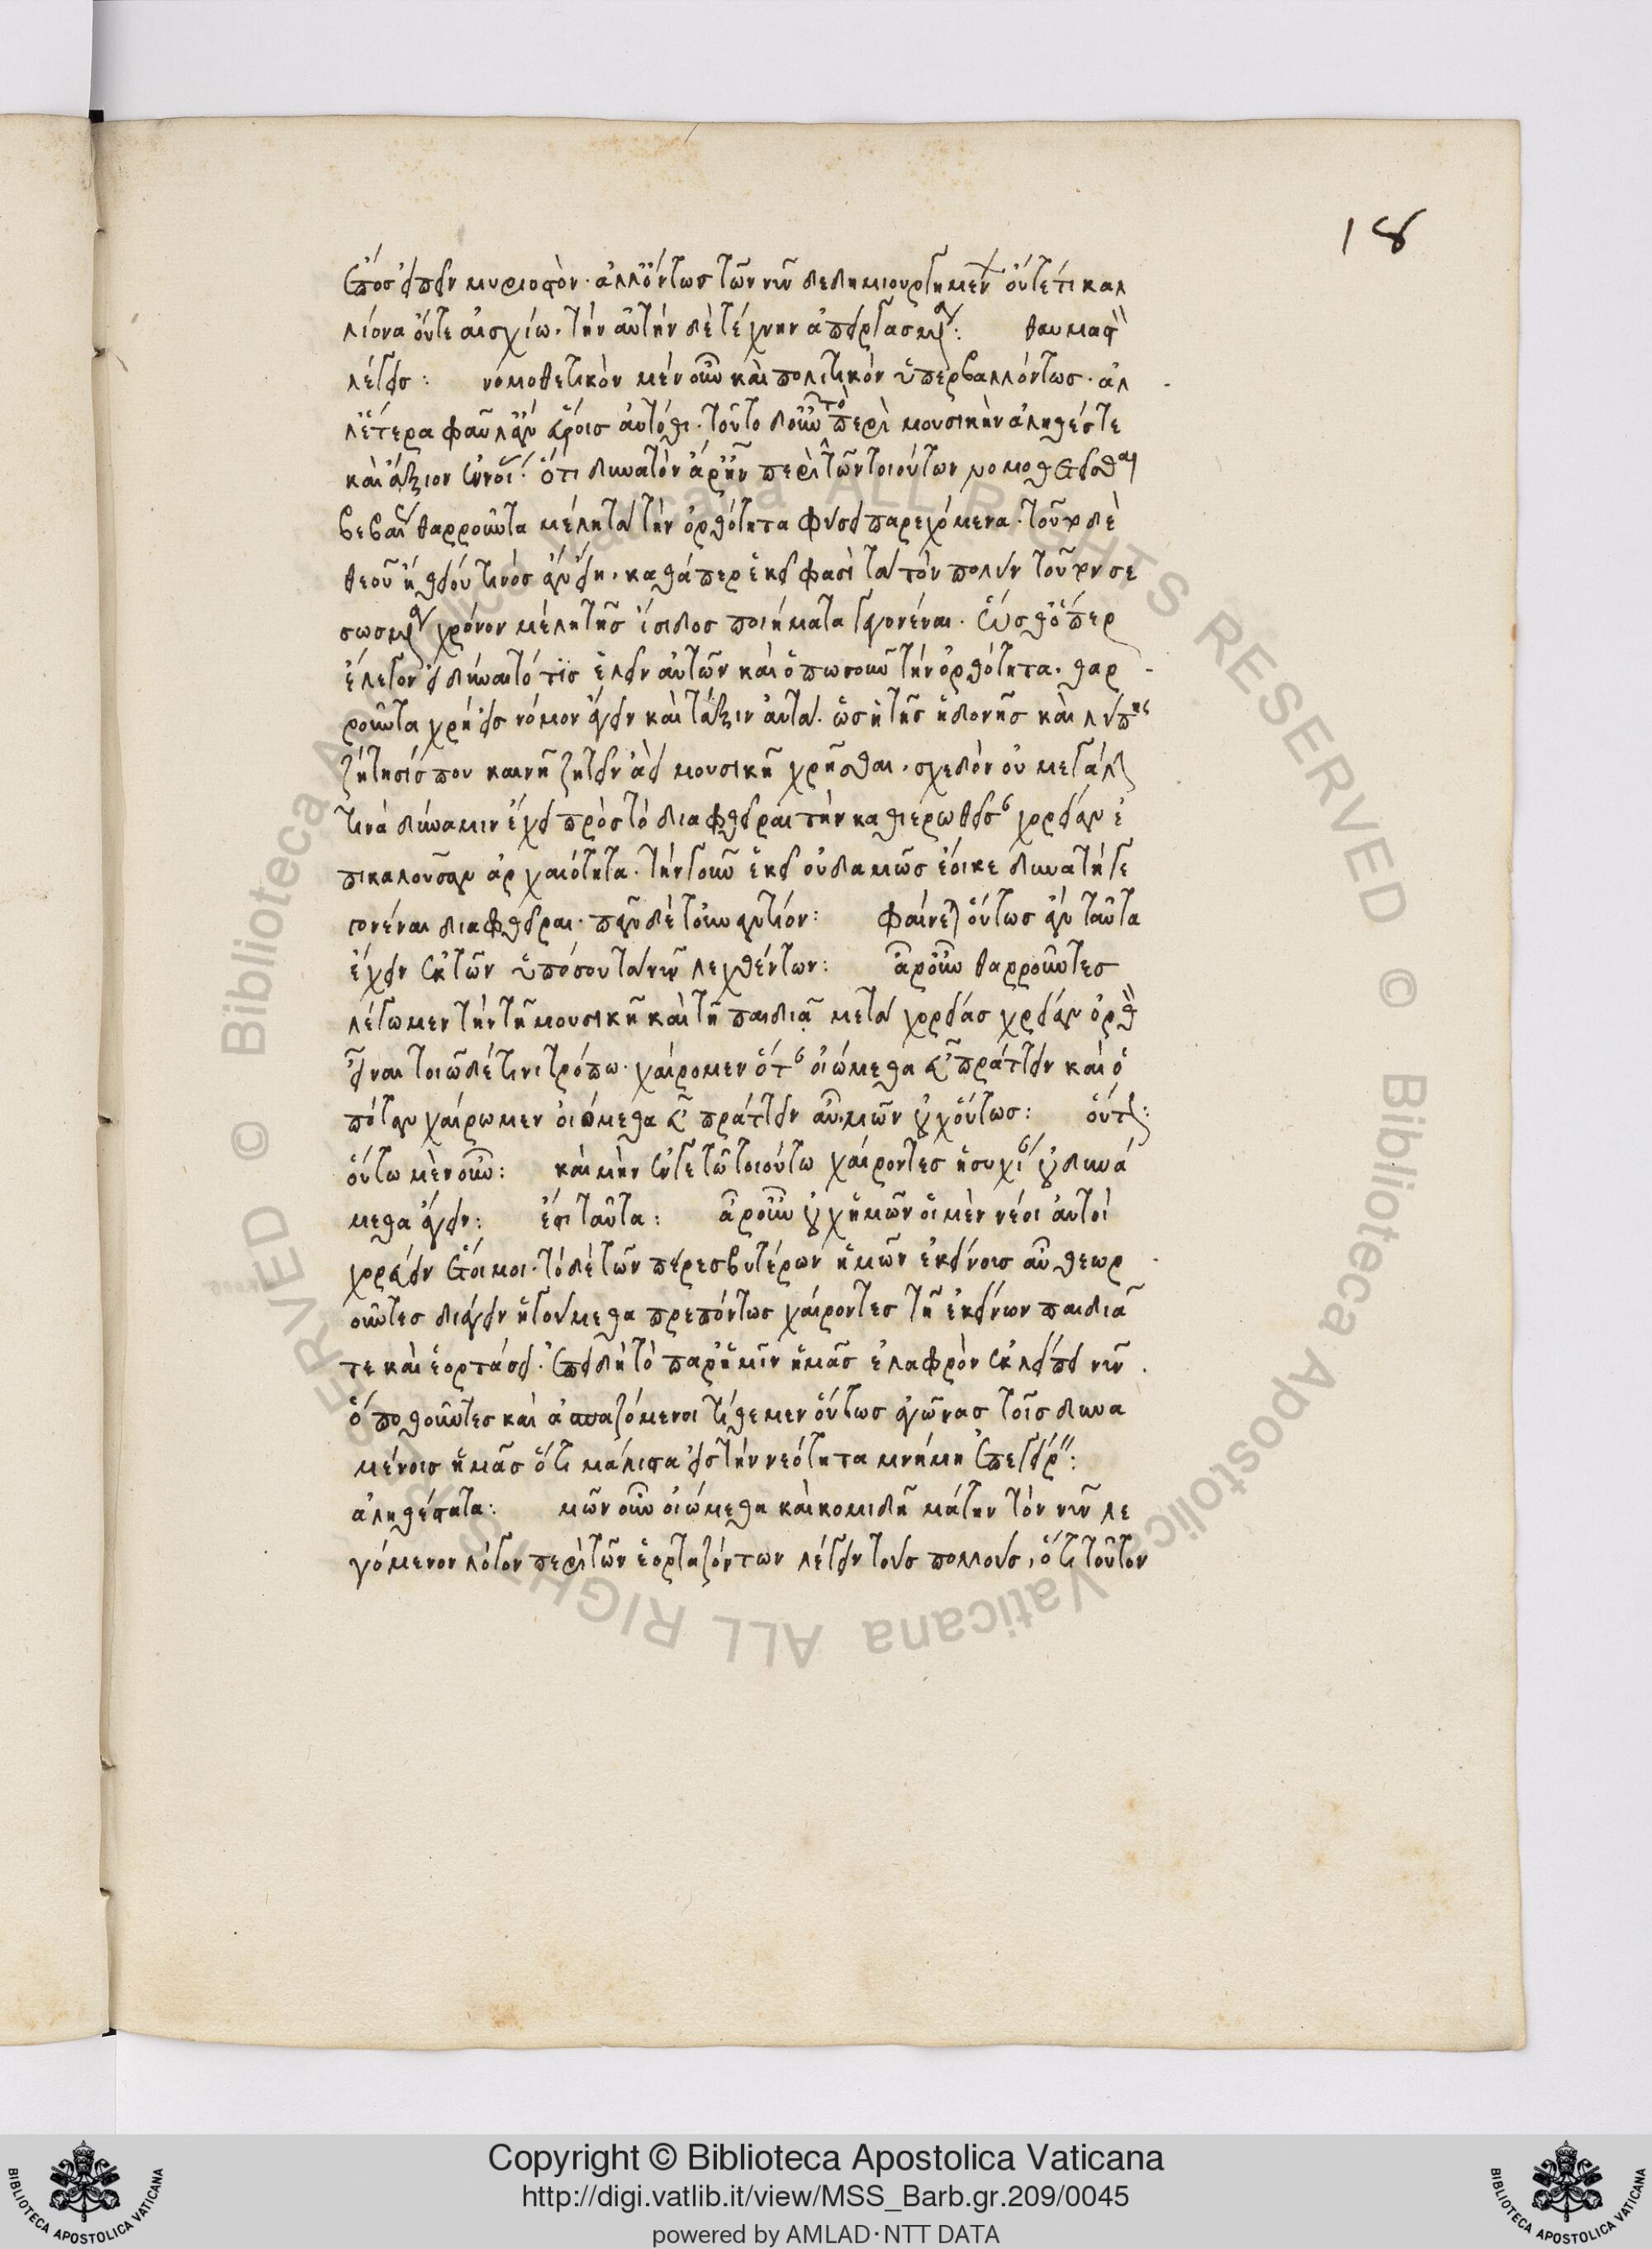 18
ἔπος εἰπεῖν μυριοστὸν· ἀλλ' ὄντως τῶν νῦν δεδημιουργημένων οὔτέ τι καλ
λίονα οὔτε αἰσχίω. τὴν αὐτὴν δὲ τέχνην ἀπειργασμένα: θαυμαστὸν
λέγεις: νομοθετικὸν μὲν οὖν καὶ πολιτικὸν ὑπερβαλλόντως. ἀλ
λ' ἕτερα φαῦλ' ἂν εὕροις αὐτόθι. τοῦτο δ' οὖν τὸ περὶ μουσικὴν ἀληθές τε
καὶ ἄξιον ἐννοίας: ὅτι δυνατὸν ἄρ' ἦν περὶ τῶν τοιούτων νομοθετεῖσθαι
βεβαίως θαρροῦντα μέλη τὰ τὴν ὀρθότητα φύσει παρεχόμενα. τοῦτο δὲ
θεοῦ ἢ θείου τινὸς ἂν εἴη. καθάπερ ἐκεῖ φασὶ τὰ τὸν πολὺν τοῦτον σε
σωσμένα χρόνον μέλη τῆς ἴσιδος ποιήματα γεγονέναι. ὥσθ' ὅπερ
ἔλεγον εἰ δύναιτό τις ἑλεῖν αὐτῶν καὶ ὁπωσοῦν τὴν ὀρθότητα. θαρ
ροῦντα χρὴ εἰς νόμον ἄγειν καὶ τάξιν αὐτά. ὡς ἡ τῆς ἡδονῆς καὶ λύπης
ζήτησίς που καινῇ ζητεῖν ἀεὶ μουσικῇ χρῆσθαι. σχεδὸν οὐ μεγάλην
τινὰ δύναμιν ἔχει πρὸς τὸ διαφθεῖραι τὴν καθιερωθεῖσαν χορείαν ἐ
πικαλοῦσαν ἀρχαιότητα. τὴν γοῦν ἐκεῖ οὐδαμῶς ἔοικε δυνατὴ γε
γονέναι διαφθεῖραι. πᾶν δὲ τοὐναντίον: φαίνεται οὕτως ἂν ταῦτα
ἔχειν ἐκ τῶν ὑπὸ σοῦ τὰ νῦν λεχθέντων: ἆρ' οὖν θαρροῦντες
λέγωμεν τὴν τῇ μουσικῇ καὶ τῇ παιδιᾷ μετὰ χορείας χρείαν ὀρθὴν
εἶναι τοιῷδέ τινι τρόπῳ. χαίρομεν ὅταν οἰώμεθα εὖ πράττειν καὶ ὁ
πόταν χαίρωμεν οἰόμεθα εὖ πράττειν αὖ. μῶν οὐχ οὕτως: οὕτως:
οὕτω μὲν οὖν: καὶ μὴν ἔν γε τῷ τοιούτῳ χαίροντες ἡσυχίαν οὐ δυνά
μεθα ἄγειν: ἔστι ταῦτα: ἆρ' οὖν οὐχ ἡμῶν οἱ μὲν νέοι αὐτοὶ
χορεύειν ἕτοιμοι. τὸ δὲ τῶν πρεσβυτέρων ἡμῶν ἐκείνοις αὖ θεωρ
οῦντες διάγειν ἡγούμεθα πρεπόντως χαίροντες τῇ ἐκείνων παιδιᾷ
τε καὶ ἑορτάσει. ἐπειδὴ τὸ παρ' ἡμῖν ἡμᾶς ἐλαφρὸν ἐκλείπει νῦν
ὃ ποθοῦντες καὶ ἀσπαζόμενοι τίθεμεν οὕτως ἀγῶνας τοῖς δυνα
μένοις ἡμᾶς ὅτι μάλιστα εἰς τὴν νεότητα μνήμῃ ἐπεγείρειν:
ἀληθέστατα: μῶν οὖν οἰώμεθα καὶ κομιδῇ μάτην τὸν νῦν λε
γόμενον λόγον περὶ τῶν ἑορταζόντων λέγειν τοὺς πολλούς, ὅτι τοῦτον
Copyright © Biblioteca Apostolica Vaticana
http://digi.vatlib.it/view/MSS_Barb.gr.209/0045
powered by AMLAD·NTT DATA